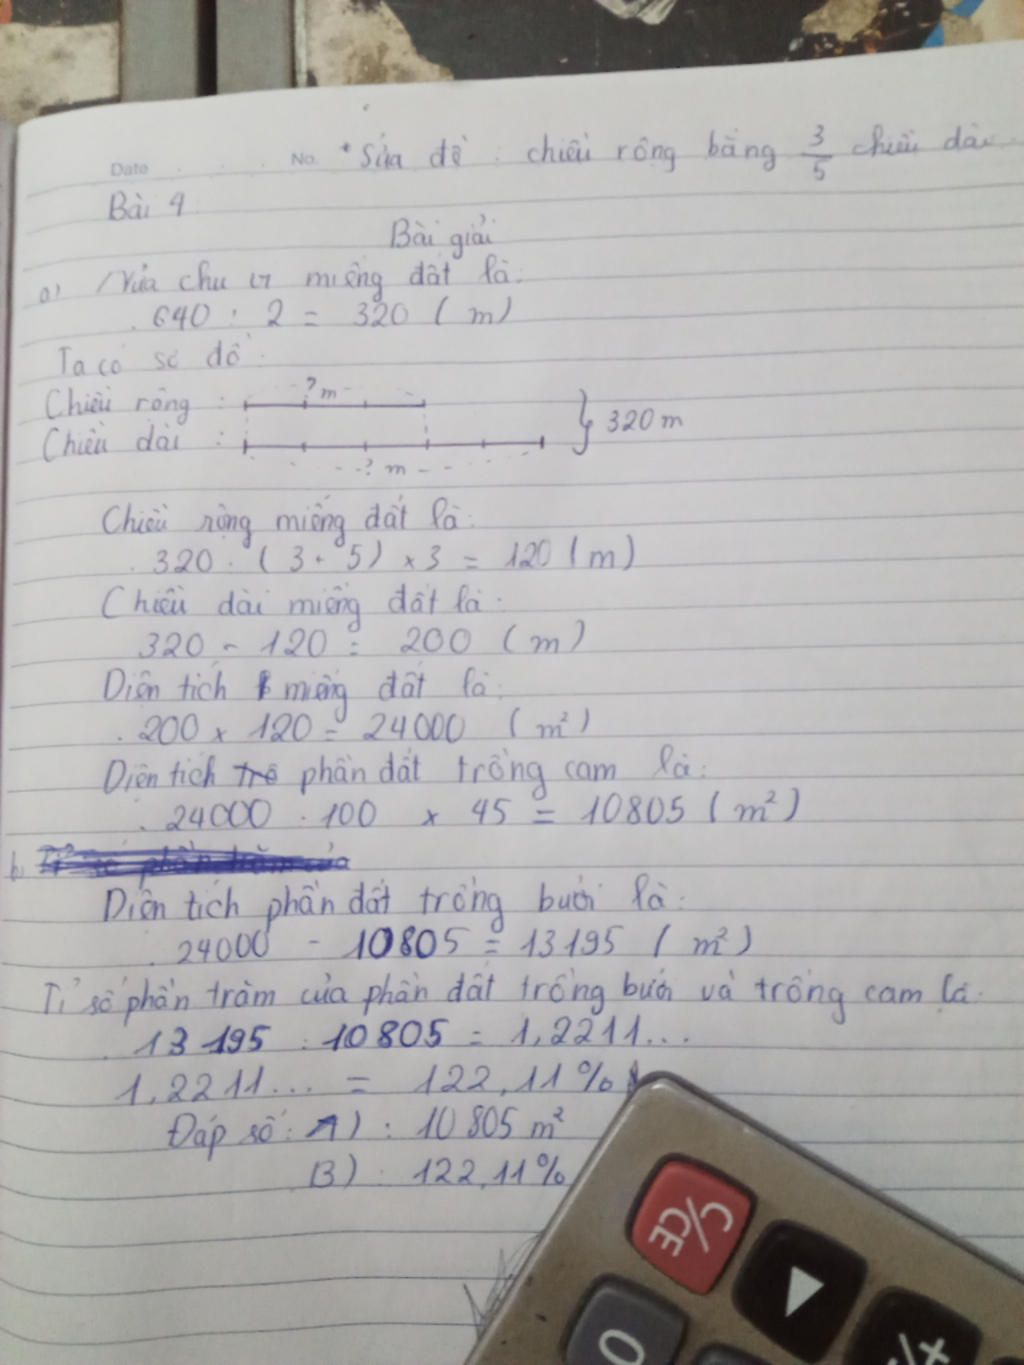 Date No. * Sửa đề : chiều rộng bằng 3/5 chiều dài
Bài 4
Bài giải
a) Nửa chu vi miếng đất là:
640 : 2 = 320 ( m)
Ta có sơ đồ:
? m
Chiều rộng :
320 m
Chiều dài :
? m
Chiều rộng miếng đất là:
320 : ( 3 + 5) × 3 = 120 (m)
Chiều dài miếng đất là:
320 - 120 = 200 (m)
Diện tích miếng đất là:
200 × 120 = 24000 (m²)
Diện tích phần đất trồng cam là:
24000 : 100 × 45 = 10805 (m²)
b)
Diện tích phần đất trồng bưởi là:
24000 - 10805 = 13195 (m²)
Tỉ số phần trăm của phần đất trồng bưởi và trồng cam là:
13195 : 10805 = 1,2211...
1,2211... = 122,11%
Đáp số: A) : 10805 m²
B) : 122,11%
C/CE
0